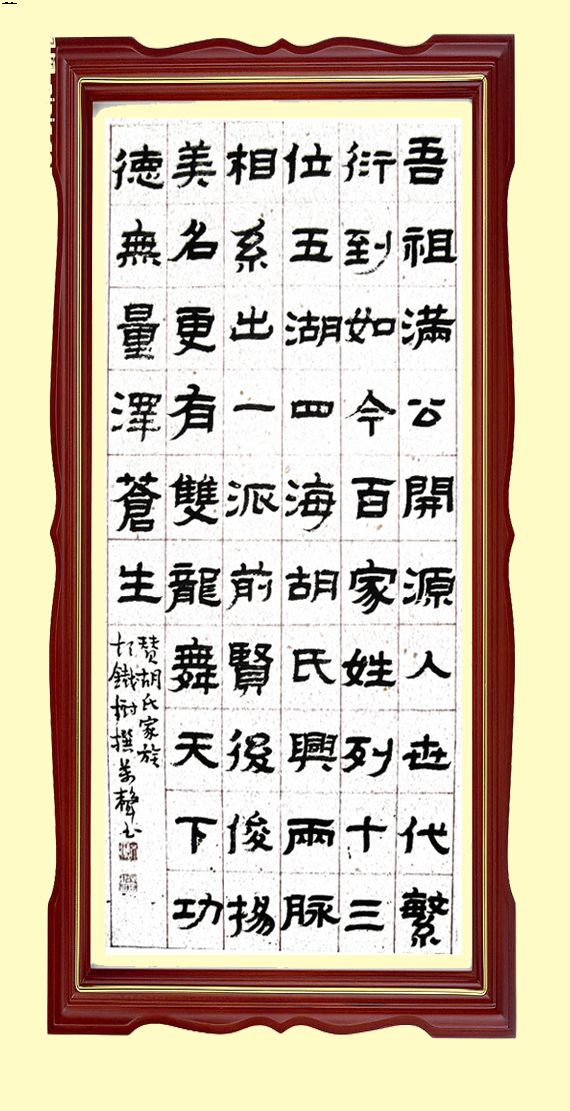 吾祖滿公開源人世代繁
衍到如今百家姓列十三
位五湖四海胡氏興兩脉
相系出一派前賢後俊揚
美名更有雙龍舞天下功
德無量澤蒼生
赞胡氏家族
鐵樹撰 書